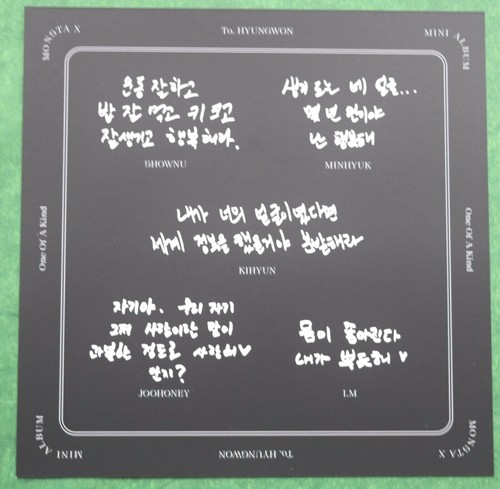 MONSTA X
To. HYUNGWON
MINI ALBUM
운동 잘하고
밥 잘 먹고 키 크고
잘생기고 행복해라.
SHOWNU
네 얼굴...
난 행복해
MINHYUK
One Of A Kind
One Of A Kind
내가 너의 얼굴이었다면
세계 정복을 했을거야 분발해라
KIHYUN
자기야. 우리 자기
그저 사랑이란 말이
과분한 정도로 사랑해♥
알지?
JOOHONEY
몸이 좋아진다
내가 뿌듯해 ♥
I.M
MINI ALBUM
To. HYUNGWON
MONSTA X